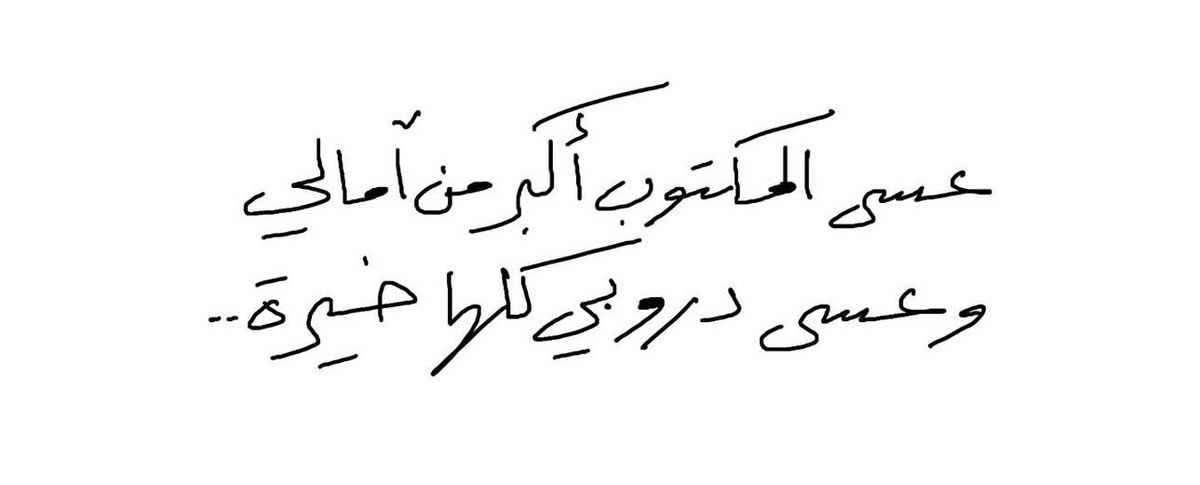 عسى المكتوب أكبر من آمالي
وعسى دروبي كلها خيرة..